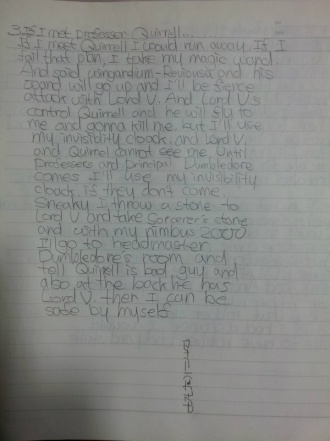 3. If I met Professor Quirrell.....
If I meet Quirrell I would run away. If I
fail that plan, I take my magic wand.
And said, wingardium-Reviousa and his
board will go up and I'll be fierce
attack with Lord V. And Lord V's
control Quirrell and he will fly to
me and gonna kill me. but I'll use
my invisibility cloack. and Lord V.
and Quirrel cannot see me. Until
Professers and principal Dumbledore
comes I'll use my invisibility
cloack. if they don't come.
Sneaky I throw a stone to
Lord V and take Sorcerer's stone
and with my nimbus 2000
I'll go to headmaster
Dumbledore's room and
tell Quirrell is bad guy and
also at the back he has
Lord V. then I can be
safe by myself